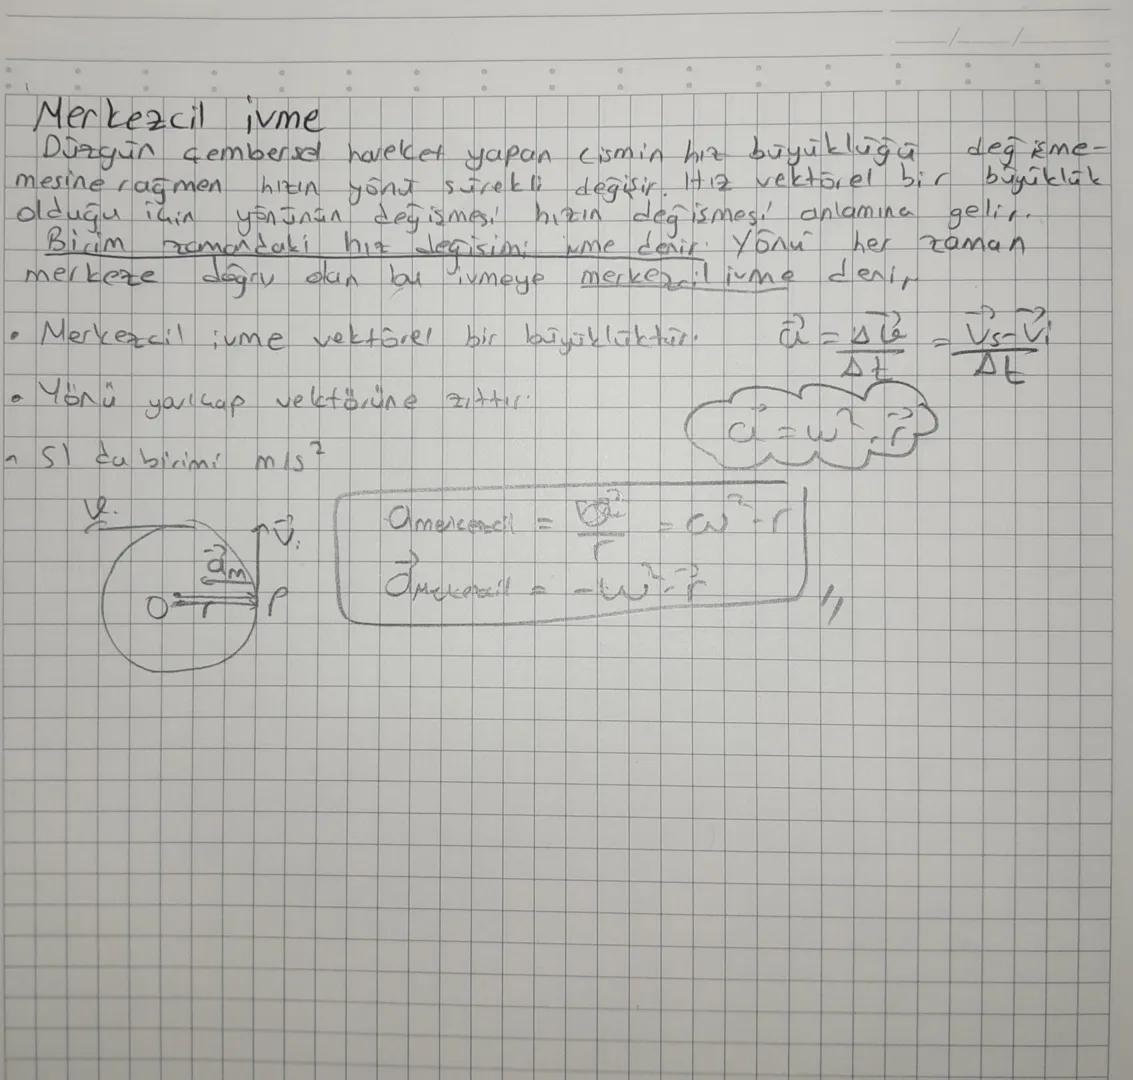 Merkezcil ivme
Düzgün çembersel hareket yapan cismin hız büyüklüğü değişme-
mesine rağmen hızın yönü sürekli değişir. Hız vektörel bir büyüklük
olduğu için yönünün değişmesi hızın değişmesi anlamına gelir.
Birim zamandaki hız değişimi ivme denir. Yönü her zaman
merkeze doğru olan bu ivmeye merkezcil ivme denir
• Merkezcil ivme vektörel bir büyüklüktür. a⃗ = Δv⃗/Δt = (V⃗s - V⃗i)/Δt
• Yönü yarıçap vektörüne zıttır.
a⃗ = w² . r⃗
SI da birimi m/s²
a merkezcil = v²/r = ω² . r
a⃗ merkezcil = -ω² . r⃗
V⃗i
a⃗m
O r P